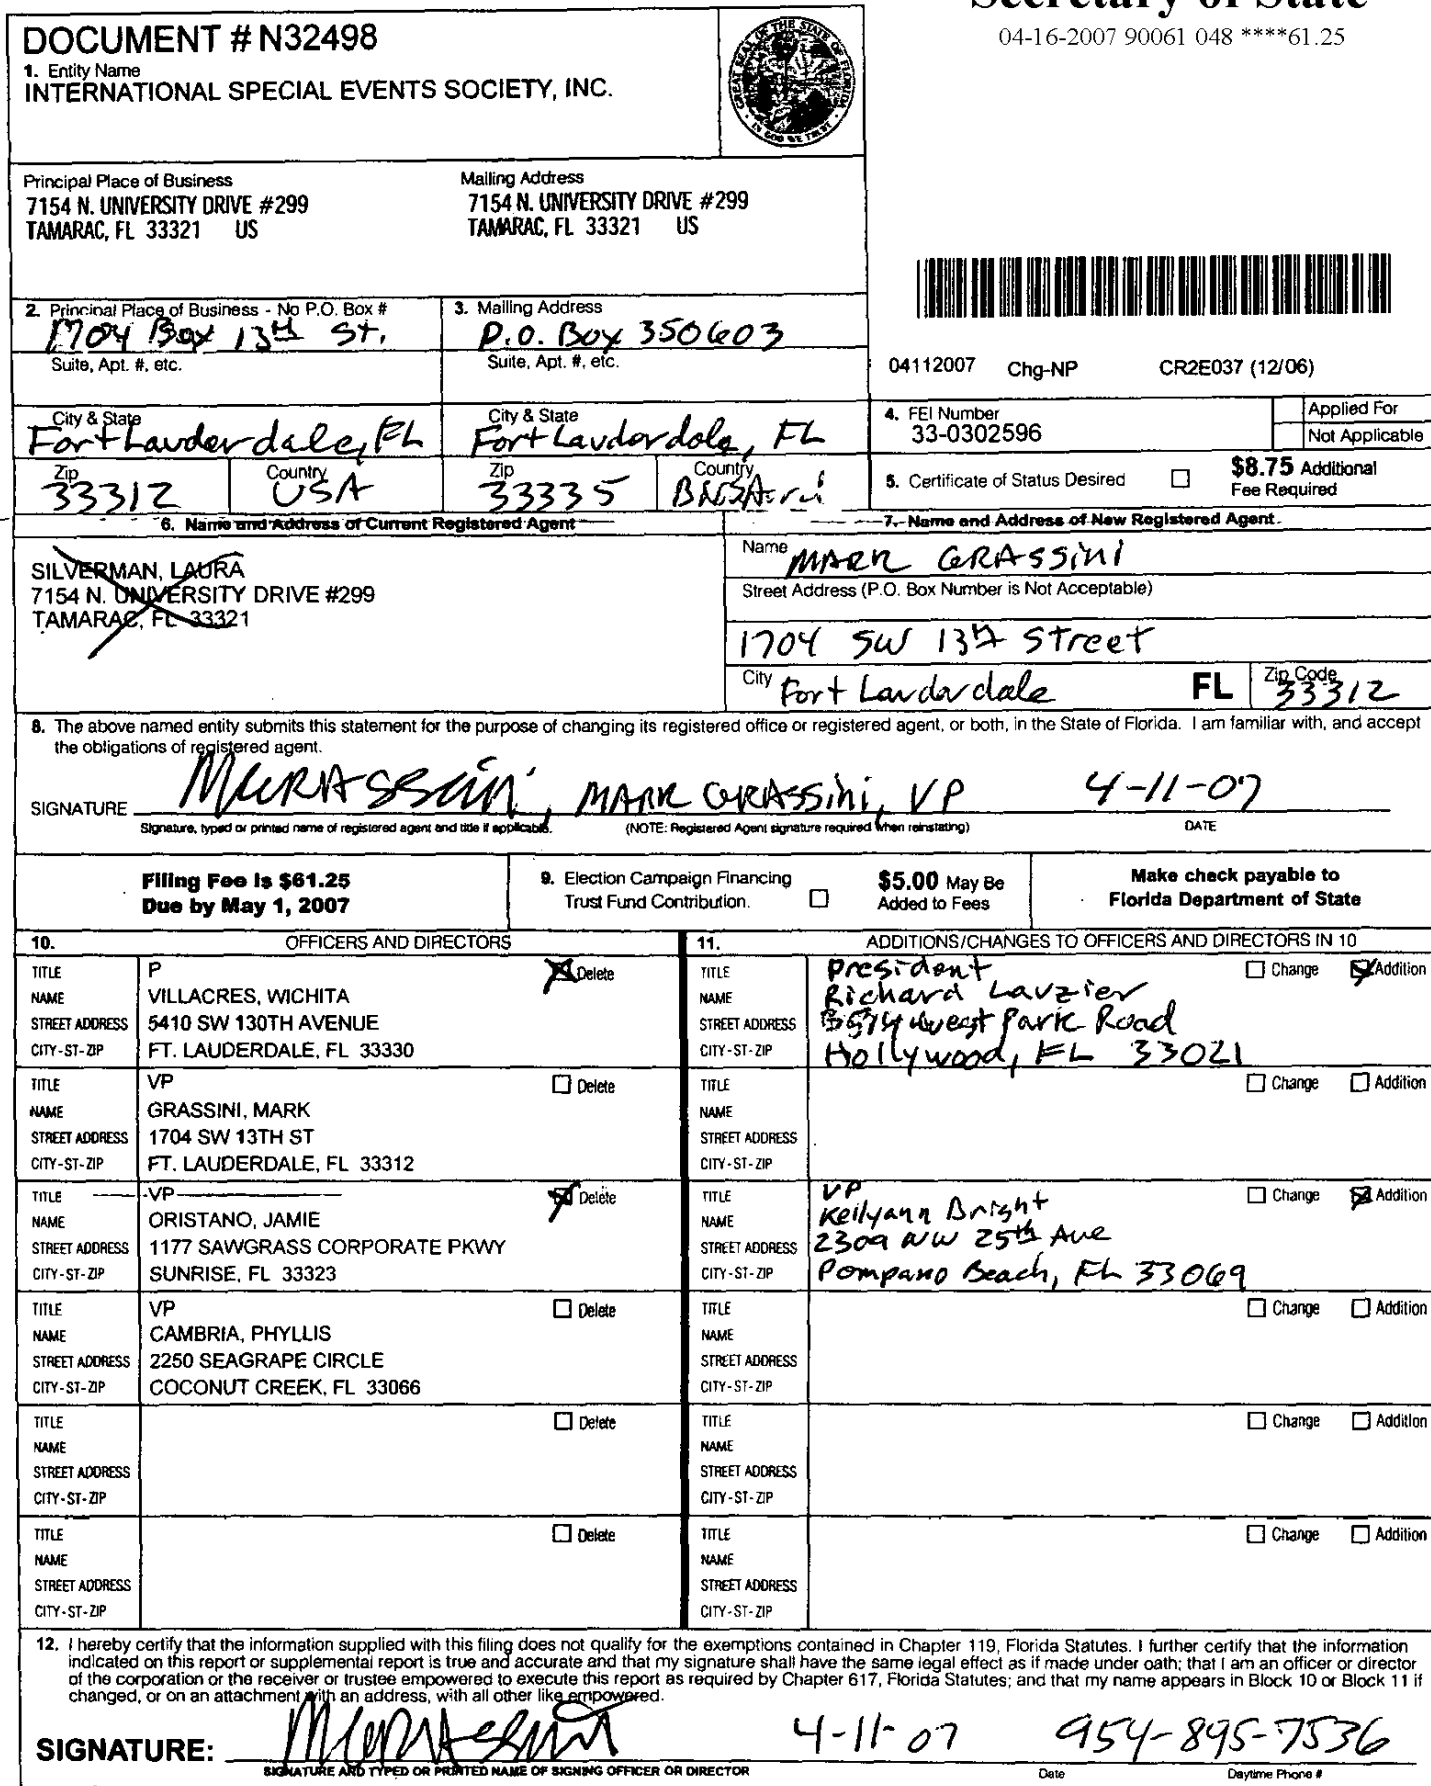 Secretary of State
04-16-2007 90061 048 ****61.25
DOCUMENT # N32498
1. Entity Name
INTERNATIONAL SPECIAL EVENTS SOCIETY, INC.
GREAT SEAL OF THE STATE OF FLORIDA
IN GOD WE TRUST
Principal Place of Business
7154 N. UNIVERSITY DRIVE #299
TAMARAC, FL 33321 US
Mailing Address
7154 N. UNIVERSITY DRIVE #299
TAMARAC, FL 33321 US
2. Principal Place of Business - No P.O. Box #
1704 Box 13th St.
Suite, Apt. #, etc.
City & State
Fort Lauderdale, FL
Zip
33312
Country
USA
3. Mailing Address
P.O. Box 350603
Suite, Apt. #, etc.
City & State
Fort Lauderdale, FL
Zip
33335
Country
04112007 Chg-NP CR2E037 (12/06)
4. FEI Number
33-0302596
Applied For
Not Applicable
5. Certificate of Status Desired
$8.75 Additional
Fee Required
6. Name and Address of Current Registered Agent
SILVERMAN, LAURA
7154 N. UNIVERSITY DRIVE #299
TAMARAC, FL 33321
7. Name and Address of New Registered Agent
Name MARK GRASSini
Street Address (P.O. Box Number is Not Acceptable)
1704 SW 13th Street
City Fort Lauderdale FL Zip Code 33312
8. The above named entity submits this statement for the purpose of changing its registered office or registered agent, or both, in the State of Florida. I am familiar with, and accept
the obligations of registered agent.
SIGNATURE MGRASSini, MARK GRASSini, VP 4-11-07
Signature, typed or printed name of registered agent and title if applicable. (NOTE: Registered Agent signature required when reinstating) DATE
Filing Fee is $61.25
Due by May 1, 2007
9. Election Campaign Financing
Trust Fund Contribution.
$5.00 May Be
Added to Fees
Make check payable to
Florida Department of State
10. OFFICERS AND DIRECTORS
TITLE P Delete
NAME VILLACRES, WICHITA
STREET ADDRESS 5410 SW 130TH AVENUE
CITY-ST-ZIP FT. LAUDERDALE, FL 33330
TITLE VP Delete
NAME GRASSINI, MARK
STREET ADDRESS 1704 SW 13TH ST
CITY-ST-ZIP FT. LAUDERDALE, FL 33312
TITLE VP Delete
NAME ORISTANO, JAMIE
STREET ADDRESS 1177 SAWGRASS CORPORATE PKWY
CITY-ST-ZIP SUNRISE, FL 33323
TITLE VP Delete
NAME CAMBRIA, PHYLLIS
STREET ADDRESS 2250 SEAGRAPE CIRCLE
CITY-ST-ZIP COCONUT CREEK, FL 33066
TITLE Delete
NAME
STREET ADDRESS
CITY-ST-ZIP
TITLE Delete
NAME
STREET ADDRESS
CITY-ST-ZIP
11. ADDITIONS/CHANGES TO OFFICERS AND DIRECTORS IN 10
TITLE President Change Addition
NAME Richard Lavzier
STREET ADDRESS West Park Road
CITY-ST-ZIP Hollywood, FL 33021
TITLE Change Addition
NAME
STREET ADDRESS
CITY-ST-ZIP
TITLE VP Change Addition
NAME Kellyann Bright
STREET ADDRESS 2309 NW 25th Ave
CITY-ST-ZIP Pompano Beach, FL 33069
TITLE Change Addition
NAME
STREET ADDRESS
CITY-ST-ZIP
TITLE Change Addition
NAME
STREET ADDRESS
CITY-ST-ZIP
TITLE Change Addition
NAME
STREET ADDRESS
CITY-ST-ZIP
12. I hereby certify that the information supplied with this filing does not qualify for the exemptions contained in Chapter 119, Florida Statutes. I further certify that the information
indicated on this report or supplemental report is true and accurate and that my signature shall have the same legal effect as if made under oath; that I am an officer or director
of the corporation or the receiver or trustee empowered to execute this report as required by Chapter 617, Florida Statutes; and that my name appears in Block 10 or Block 11 if
changed, or on an attachment with an address, with all other like empowered.
SIGNATURE: MGRASSini 4-11-07 954-895-7536
SIGNATURE AND TYPED OR PRINTED NAME OF SIGNING OFFICER OR DIRECTOR Date Daytime Phone #